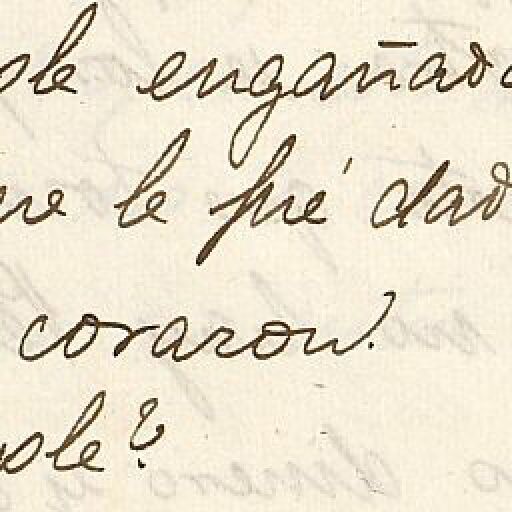 sle engañado
re le fué dad
corazon.
sle?